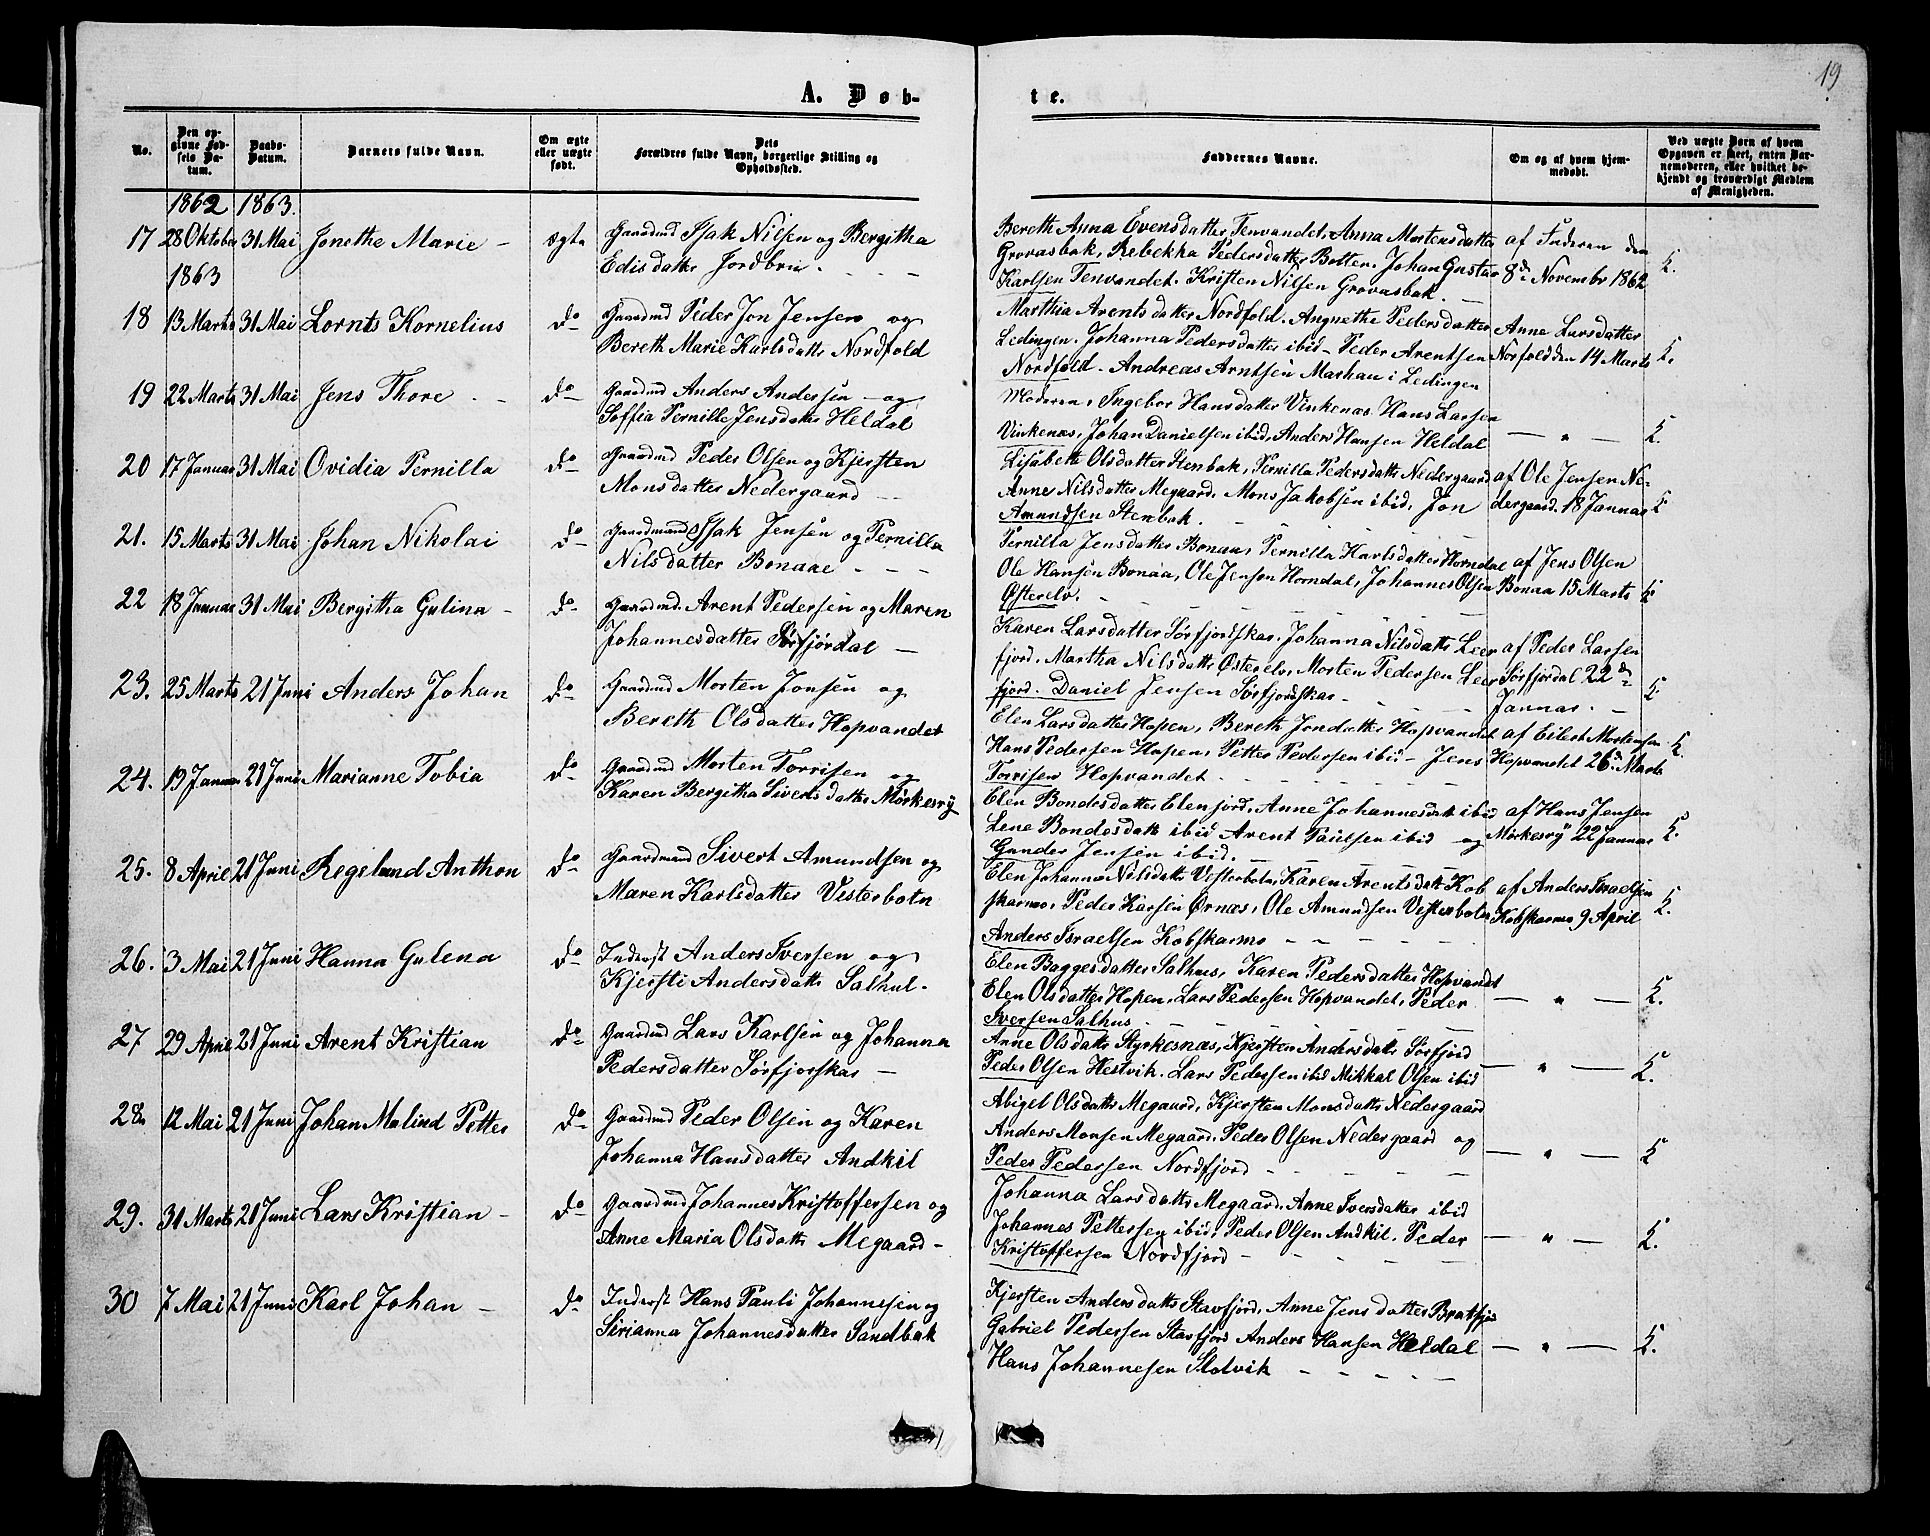 19
A. Døb-
te.
No.
Den op-
givne Fød-
sels Da-
tum.
Daabs-
Datum.
Barnets fulde Navn.
Om ægte
eller uægte
født.
Dets
Forældres fulde Navn, borgerlige Stilling og
Opholdssted.
Faddernes Navne.
Om og af hvem hjem-
medøbt.
Ved uægte Børn af hvem
Opgaven er skeet, enten Bar-
nemoderen, eller hvilket be-
kjendt og troværdigt Medlem
af Menigheden.
1862 1863.
17 28 Oktober 31 Mai Jonethe Marie - ægte Gaardmd Isak Nilsen og Bergitha
Edisdatter Jordbru.
Bereth Anna Evensdatter Tenvandet, Anna Mortensdatter
Grovasbak, Rebekka Pedersdatter Botten. Johan Gustav
Karlsen Tenvandet. Kristen Nilsen Grovasbak.
af Faderen den
8de November 1862
1863
18 13 Marts 31 Mai Lornts Kornelius do Gaardmd Peder Jon Jensen og
Bereth Marie Karlsdatter Nordfold
Marthia Arentsdatter Nordfold. Angnethe Pedersdatter
Ledingen. Johanna Pedersdatter ibid - Peder Arentsen
Nordfold. Andreas Arntsen Marhau i Ledingen
Anne Larsdatter
Norfold den 14 Marts
19 22 Marts 31 Mai Jens Thore - do Gaardmd Anders Andersen og
Soffia Pernille Jensdatter Heldal
Moderen, Ingebor Hansdatter Vinkenæs. Hans Larsen
Vinkenæs, Johan Danielsen ibid, Anders Hansen Heldal — " —
20 17 Januar 31 Mai Ovidia Pernilla do Gaardmd Peder Olsen og Kjersten
Monsdatter Nedergaard
Lisabeth Olsdatter Stenbak, Pernilla Pedersdatter Nedergaard
Anne Nilsdatter Megaard, Mons Jakobsen ibid, Jon
Amundsen Stenbak.
af Ole Jensen Ne-
dergaard. 18 Januar
21. 15 Marts 31 Mai Johan Nikolai do Gaardmand Isak Jensen og Pernilla
Nilsdatter Bonaae
Pernilla Jensdatter Bonaa, Pernilla Karlsdatter Horndal
Ole Hansen Bonaa, Ole Jenson Horndal, Johannes Olsen
Østerelv.
af Jens Olsen
Bonaa 15 Marts
22 18 Januar 31 Mai Bergitha Gulina - do Gaardmd. Arent Pedersen og Maren
Johannesdatter Sørfjordal
Karen Larsdatter Sørfjordskar. Johanna Nilsdatter Leer
fjord. Martha Nilsdatter Østerelv, Morten Pedersen Leer
fjord. Daniel Jensen Sørfjordskar
af Peder Larsen
Sørfjordal 22de
Januar.
23. 25 Marts 21 Juni Anders Johan do Gaardmd Morten Jonsen og
Bereth Olsdatter Hopvandet
Elen Larsdatter Hopen, Bereth Jondatter Hopvandet
Hans Pedersen Hopen, Petter Pedersen ibid - Jens
Torrisen Hopvandet.
af Eilert Mortensen
Hopvandet 26de Marts
24. 19 Januar 21 Juni Marianne Tobia do Gaardmd Morten Torrisen og
Karen Bergitha Sivertsdatter Mørkesvy
Elen Bondesdatter Elenjord, Anne Johannesdatter ibid
Lene Bondesdatter ibid Arent Paulsen ibid og
Gunder Jensen ibid.
af Hans Jensen
Mørkesvy 22 Januar
25. 8 April 21 Juni Regelund Anthon do Gaardmand Sivert Amundsen og
Maren Karlsdatter Vesterbotn
Elen Johanna Nilsdatter Vesterbotn, Karen Arentsdatter Kob
skarmo, Peder Larsen Ørnæs, Ole Amundsen Vesterbotn
Anders Israelsen Kobskarmo
af Anders Israelsen
Kobskarmo 9 April
26. 3 Mai 21 Juni Hanna Gulena do Inderst Anders Iversen og
Kjersti Andersdatter Salhul.
Elen Baggesdatter Salhus, Karen Pedersdatter Hopvandet
Elen Olsdatter Hopen, Lars Pedersen Hopvandet, Peder
Iversen Salhus — " —
27 29 April 21 Juni Arent Kristian do Gaardmd Lars Karlsen og Johanna
Pedersdatter Sørfjorskar
Anne Olsdatter Styrkesnæs, Kjersten Andersdatter Sørfjord
Peder Olsen Hestvik. Lars Pedersen ibid Mikkal Olsen ibid — " —
28. 12 Mai 21 Juni Johan Malind Petter do Gaardmd Peder Olsen og Karen
Johanna Hansdatter Andkil
Abigel Olsdatter Megaard, Kjersten Monsdatter Nedergaard
Anders Monsen Megaard, Peder Olsen Nedergaard og
Peder Pedersen Nordfjord — " —
29. 31 Marts 21 Juni Lars Kristian - do Gaardmd Johannes Kristoffersen og
Anne Maria Olsdatter Megaard -
Johanna Larsdatter Megaard, Anne Iversdatter ibid
Johannes Pettersen ibid, Peder Olsen Andkil, Peder
Kristoffersen Nordfjord — " —
30 7 Mai 21 Juni Karl Johan - do Inderst Hans Pauli Johannesen og
Sirianna Johannesdatter Sandbak
Kjersten Andersdatter Stavfjord, Anne Jensdatter Bratfjor
Gabriel Pedersen Stavfjord Anders Hansen Heldal
Hans Johannesen Slotvik — " —